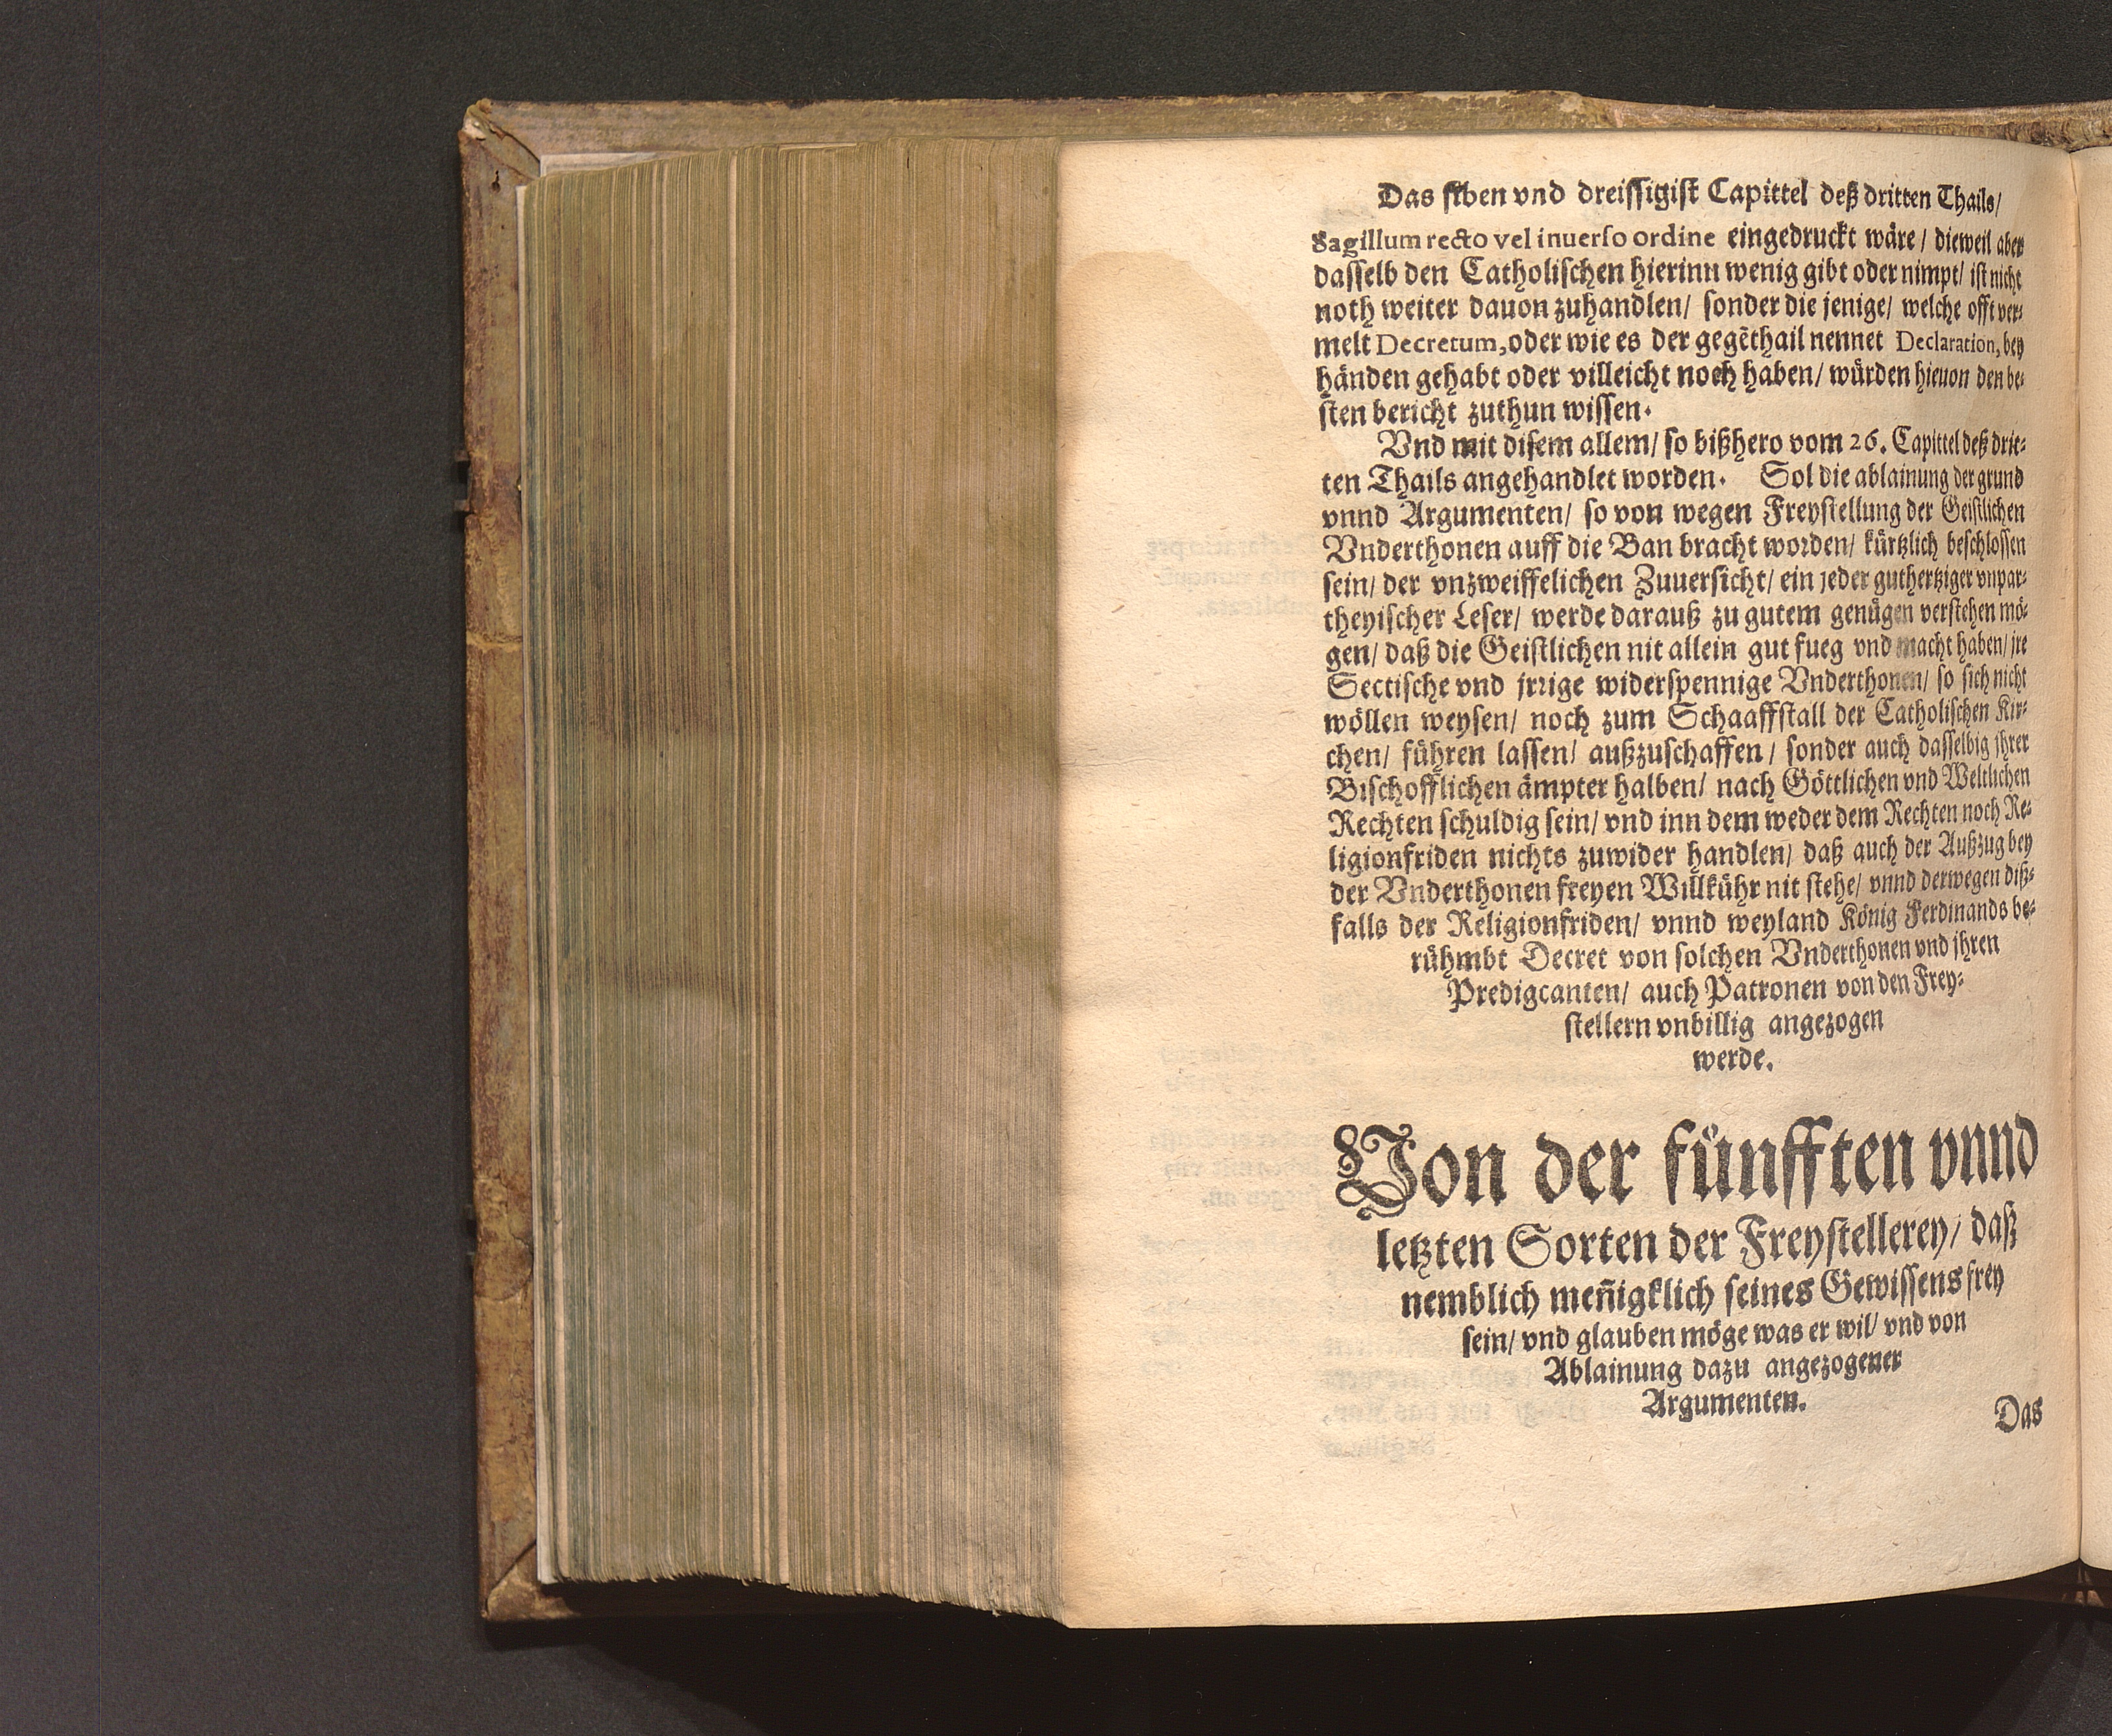 Das siben vnd dreissigist Capittel deß dritten Thails/
Sagillum recto vel inuerso ordine eingedruckt wäre / dieweil aber
dasselb den Catholischen hierinn wenig gibt oder nimpt/ ist nicht
noth weiter dauon zuhandlen/ sonder die jenige/ welche offt ver-
melt Decretum, oder wie es der gegēthail nennet Declaration, bey
händen gehabt oder villeicht noch haben/ würden hieuon den be-
sten bericht zuthun wissen.
Vnd mit disem allem/ so bißhero vom 26. Capittel deß drit-
ten Thails angehandlet worden. Sol die ablainung der grund
vnnd Argumenten/ so von wegen Freystellung der Geistlichen
Vnderthonen auff die Ban bracht worden/ kürtzlich beschlossen
sein/ der vnzweiffelichen Zuuersicht/ ein jeder guthertziger vnpar-
theyischer Leser/ werde darauß zu gutem genügen verstehen mö-
gen/ daß die Geistlichen nit allein gut fueg vnd macht haben/ jre
Sectische vnd jrrige widerspennige Vnderthonen/ so sich nicht
wöllen weysen/ noch zum Schaaffstall der Catholischen Kir-
chen/ führen lassen/ außzuschaffen / sonder auch dasselbig jhrer
Bischofflichen ämpter halben/ nach Göttlichen vnd Weltlichen
Rechten schuldig sein/ vnd inn dem weder dem Rechten noch Re-
ligionfriden nichts zuwider handlen/ daß auch der Außzug bey
der Vnderthonen freyen Willkühr nit stehe/ vnnd derwegen diß-
falls der Religionfriden/ vnnd weyland König Ferdinands be-
rühmbt Decret von solchen Vnderthonen vnd jhren
Predigcanten/ auch Patronen von den Frey-
stellern vnbillig angezogen
werde.
Von der fünfften vnnd
letzten Sorten der Freystellerey/ daß
nemblich meñigklich seines Gewissens frey
sein/ vnd glauben möge was er wil/ vnd von
Ablainung dazu angezogener
Argumenten.
Das